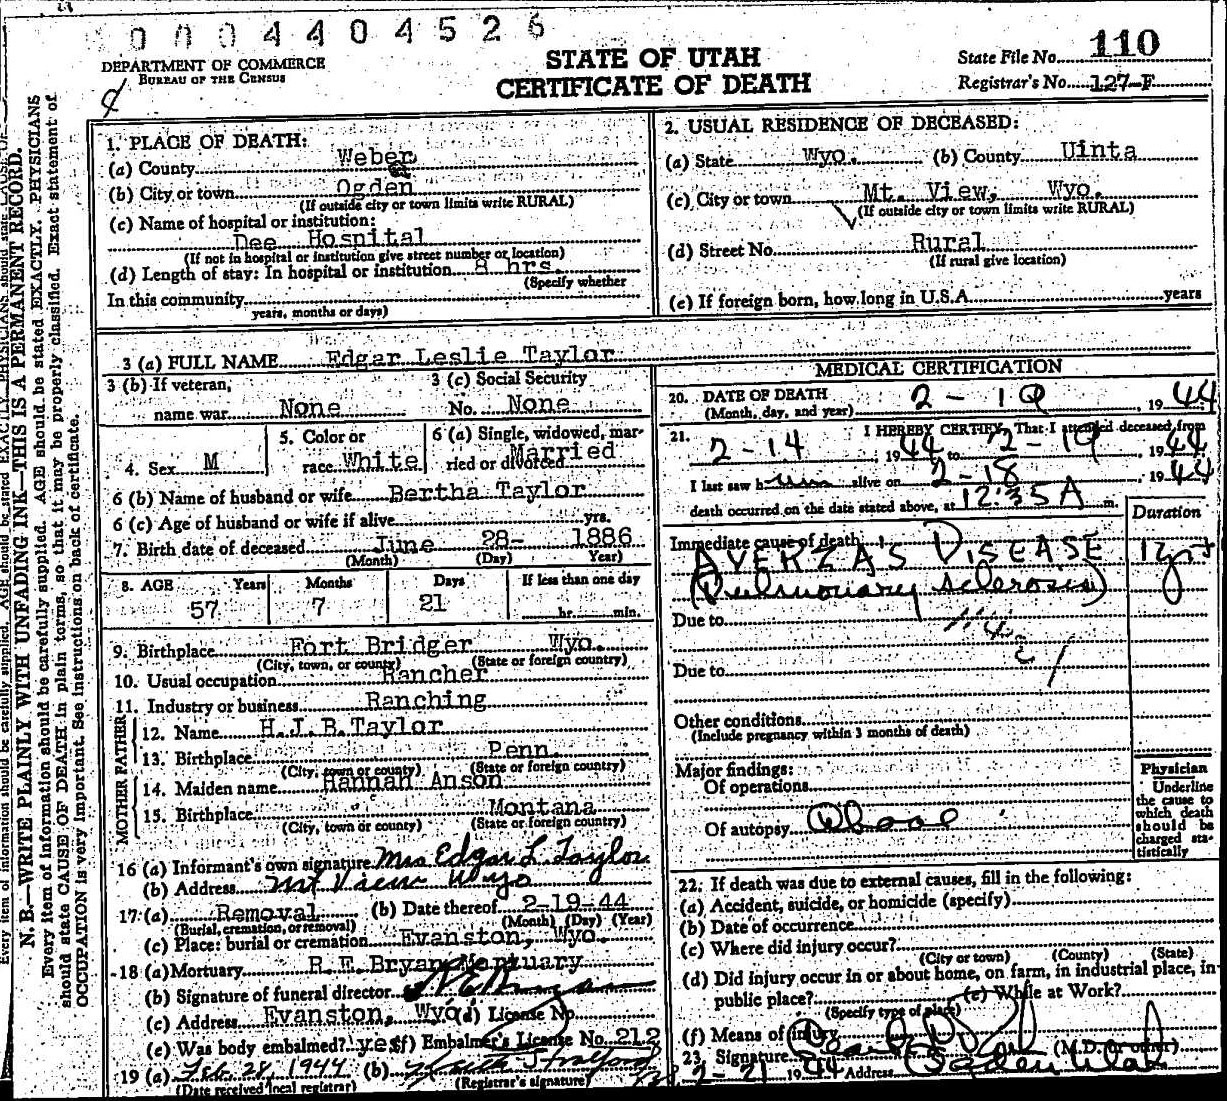 0004404526
DEPARTMENT OF COMMERCE
BUREAU OF THE CENSUS
STATE OF UTAH
CERTIFICATE OF DEATH
State File No. 110
Registrar's No. 127-F
N. B.—WRITE PLAINLY WITH UNFADING INK—THIS IS A PERMANENT RECORD.
Every item of information should be carefully supplied. AGE should be stated EXACTLY. PHYSICIANS
should state CAUSE OF DEATH in plain terms, so that it may be properly classified. Exact statement of
OCCUPATION is very important. See instructions on back of certificate.
1. PLACE OF DEATH:
(a) County Weber
(b) City or town Ogden
(If outside city or town limits write RURAL)
(c) Name of hospital or institution:
Dee Hospital
(If not in hospital or institution give street number or location)
(d) Length of stay: In hospital or institution 8 hrs.
(Specify whether
In this community
years, months or days)
2. USUAL RESIDENCE OF DECEASED:
(a) State Wyo. (b) County Uinta
(c) City or town Mt. View, Wyo.
(If outside city or town limits write RURAL)
(d) Street No. Rural
(If rural give location)
(e) If foreign born, how long in U.S.A. years
3 (a) FULL NAME Edgar Leslie Taylor
3 (b) If veteran, 3 (c) Social Security
name war None No. None
4. Sex M 5. Color or race White 6 (a) Single, widowed, married or divorced Married
6 (b) Name of husband or wife Bertha Taylor
6 (c) Age of husband or wife if alive yrs.
7. Birth date of deceased June 28- 1886
(Month) (Day) Year)
8. AGE Years Months Days If less than one day
57 7 21 hr. min.
9. Birthplace Fort Bridger Wyo.
(City, town, or county) (State or foreign country)
10. Usual occupation Rancher
11. Industry or business Ranching
FATHER
12. Name H.J.B.Taylor
13. Birthplace Penn
(City, town or county) (State or foreign country)
MOTHER
14. Maiden name Hannah Anson
15. Birthplace Montana
(City, town or county) (State or foreign country)
16 (a) Informant's own signature Mrs Edgar L Taylor
(b) Address Mt View Wyo
17 (a) Removal (b) Date thereof 2-19-44
(Burial, cremation, or removal) (Month) (Day) (Year)
(c) Place: burial or cremation Evanston, Wyo.
18 (a) Mortuary R.E.Bryan Mortuary
(b) Signature of funeral director
(c) Address Evanston, Wyo (d) License No.
(e) Was body embalmed? yes (f) Embalmer's License No. 212
19 (a) Feb. 28, 1944 (b)
(Date received local registrar) (Registrar's signature)
MEDICAL CERTIFICATION
20. DATE OF DEATH
(Month, day, and year) 2-19, 1944
21. I HEREBY CERTIFY, That I attended deceased from
2-14 1944 to 2-19, 1944
I last saw him alive on 2-18, 1944
death occurred on the date stated above, at 12:35 A m.
Duration
Immediate cause of death
AYERZAS DISEASE 1 yr
(Pulmonary sclerosis)
Due to
Due to
Other conditions
(Include pregnancy within 3 months of death)
Major findings:
Of operations
Of autopsy
Physician
Underline
the cause to
which death
should be
charged sta-
tistically
22. If death was due to external causes, fill in the following:
(a) Accident, suicide, or homicide (specify)
(b) Date of occurrence
(c) Where did injury occur?
(City or town) (County) (State)
(d) Did injury occur in or about home, on farm, in industrial place, in
public place? (e) While at Work?
(Specify type of place)
(f) Means of injury
23. Signature (M.D. or other)
2-21 1944 Address Ogden Utah